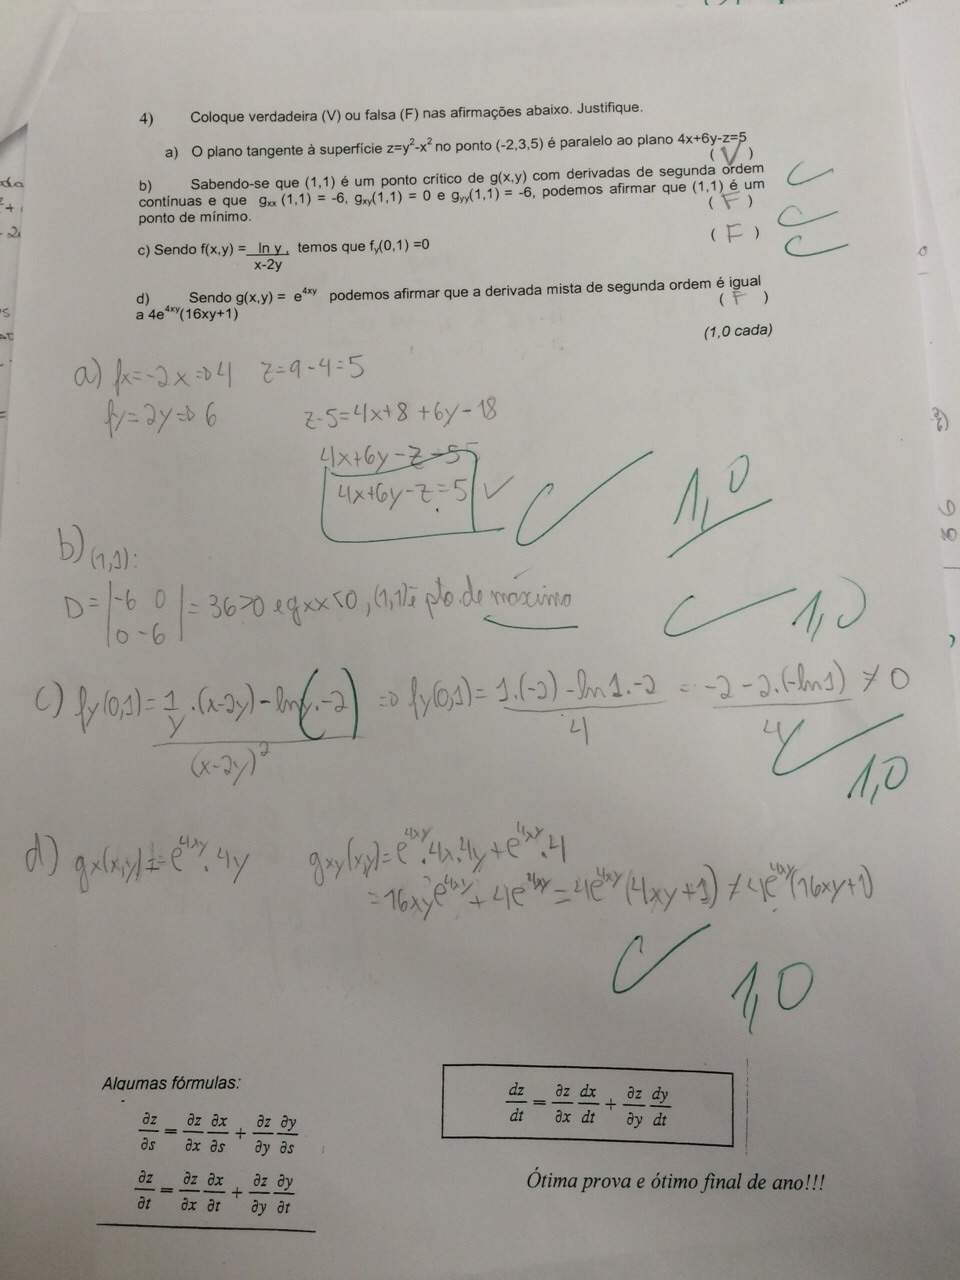 4) Coloque verdadeira (V) ou falsa (F) nas afirmações abaixo. Justifique.
a) O plano tangente à superfície z=y²-x² no ponto (-2,3,5) é paralelo ao plano 4x+6y-z=5
( V )
b) Sabendo-se que (1,1) é um ponto crítico de g(x,y) com derivadas de segunda ordem
contínuas e que gxx (1,1) = -6, gxy(1,1) = 0 e gyy(1,1) = -6, podemos afirmar que (1,1) é um
ponto de mínimo. ( F )
c) Sendo f(x,y) = ln y , temos que fy(0,1) =0 ( F )
x-2y
d) Sendo g(x,y) = e^4xy podemos afirmar que a derivada mista de segunda ordem é igual
a 4e^4xy(16xy+1) ( F )
(1,0 cada)
a) fx=-2x⇒4 z=9-4=5
fy=2y⇒6 z-5=4x+8+6y-18
4x+6y-z=5
1,0
b) (1,1):
D = |-6 0| = 36>0 e gxx<0, (1,1) é pto. de máximo
|0 -6|
1,0
c) fy(0,1) = 1/y .(x-2y)-lny(.-2) ⇒ fy(0,1) = 1.(-2)-ln1.-2 = -2-2.(-ln1) ≠ 0
(x-2y)² 4 4
1,0
d) gx(x,y) = e^4xy . 4y gxy(x,y) = e^4xy.4x.4y+e^4xy.4
= 16xye^4xy + 4e^4xy = 4e^4xy(4xy+1) ≠ 4e^4xy(16xy+1)
1,0
Algumas fórmulas:
∂z/∂s = ∂z/∂x ∂x/∂s + ∂z/∂y ∂y/∂s
∂z/∂t = ∂z/∂x ∂x/∂t + ∂z/∂y ∂y/∂t
dz/dt = ∂z/∂x dx/dt + ∂z/∂y dy/dt
Ótima prova e ótimo final de ano!!!